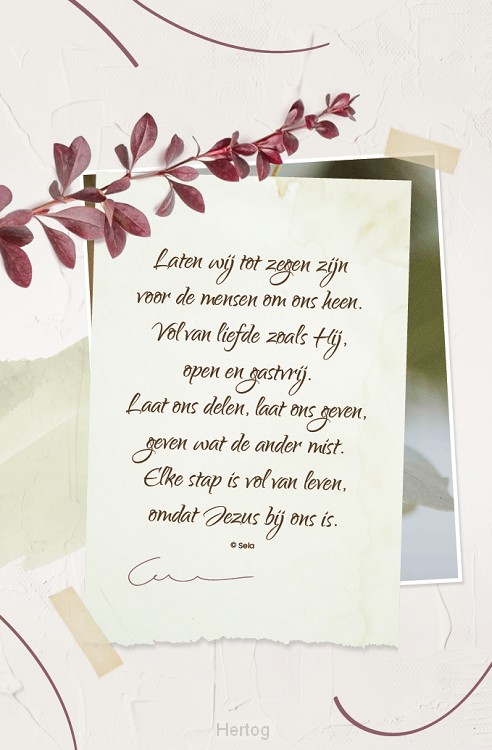 Laten wij tot zegen zijn
voor de mensen om ons heen.
Vol van liefde zoals Hij,
open en gastvrij.
Laat ons delen, laat ons geven,
geven wat de ander mist.
Elke stap is vol van leven,
omdat Jezus bij ons is.
© Sela
Hertog